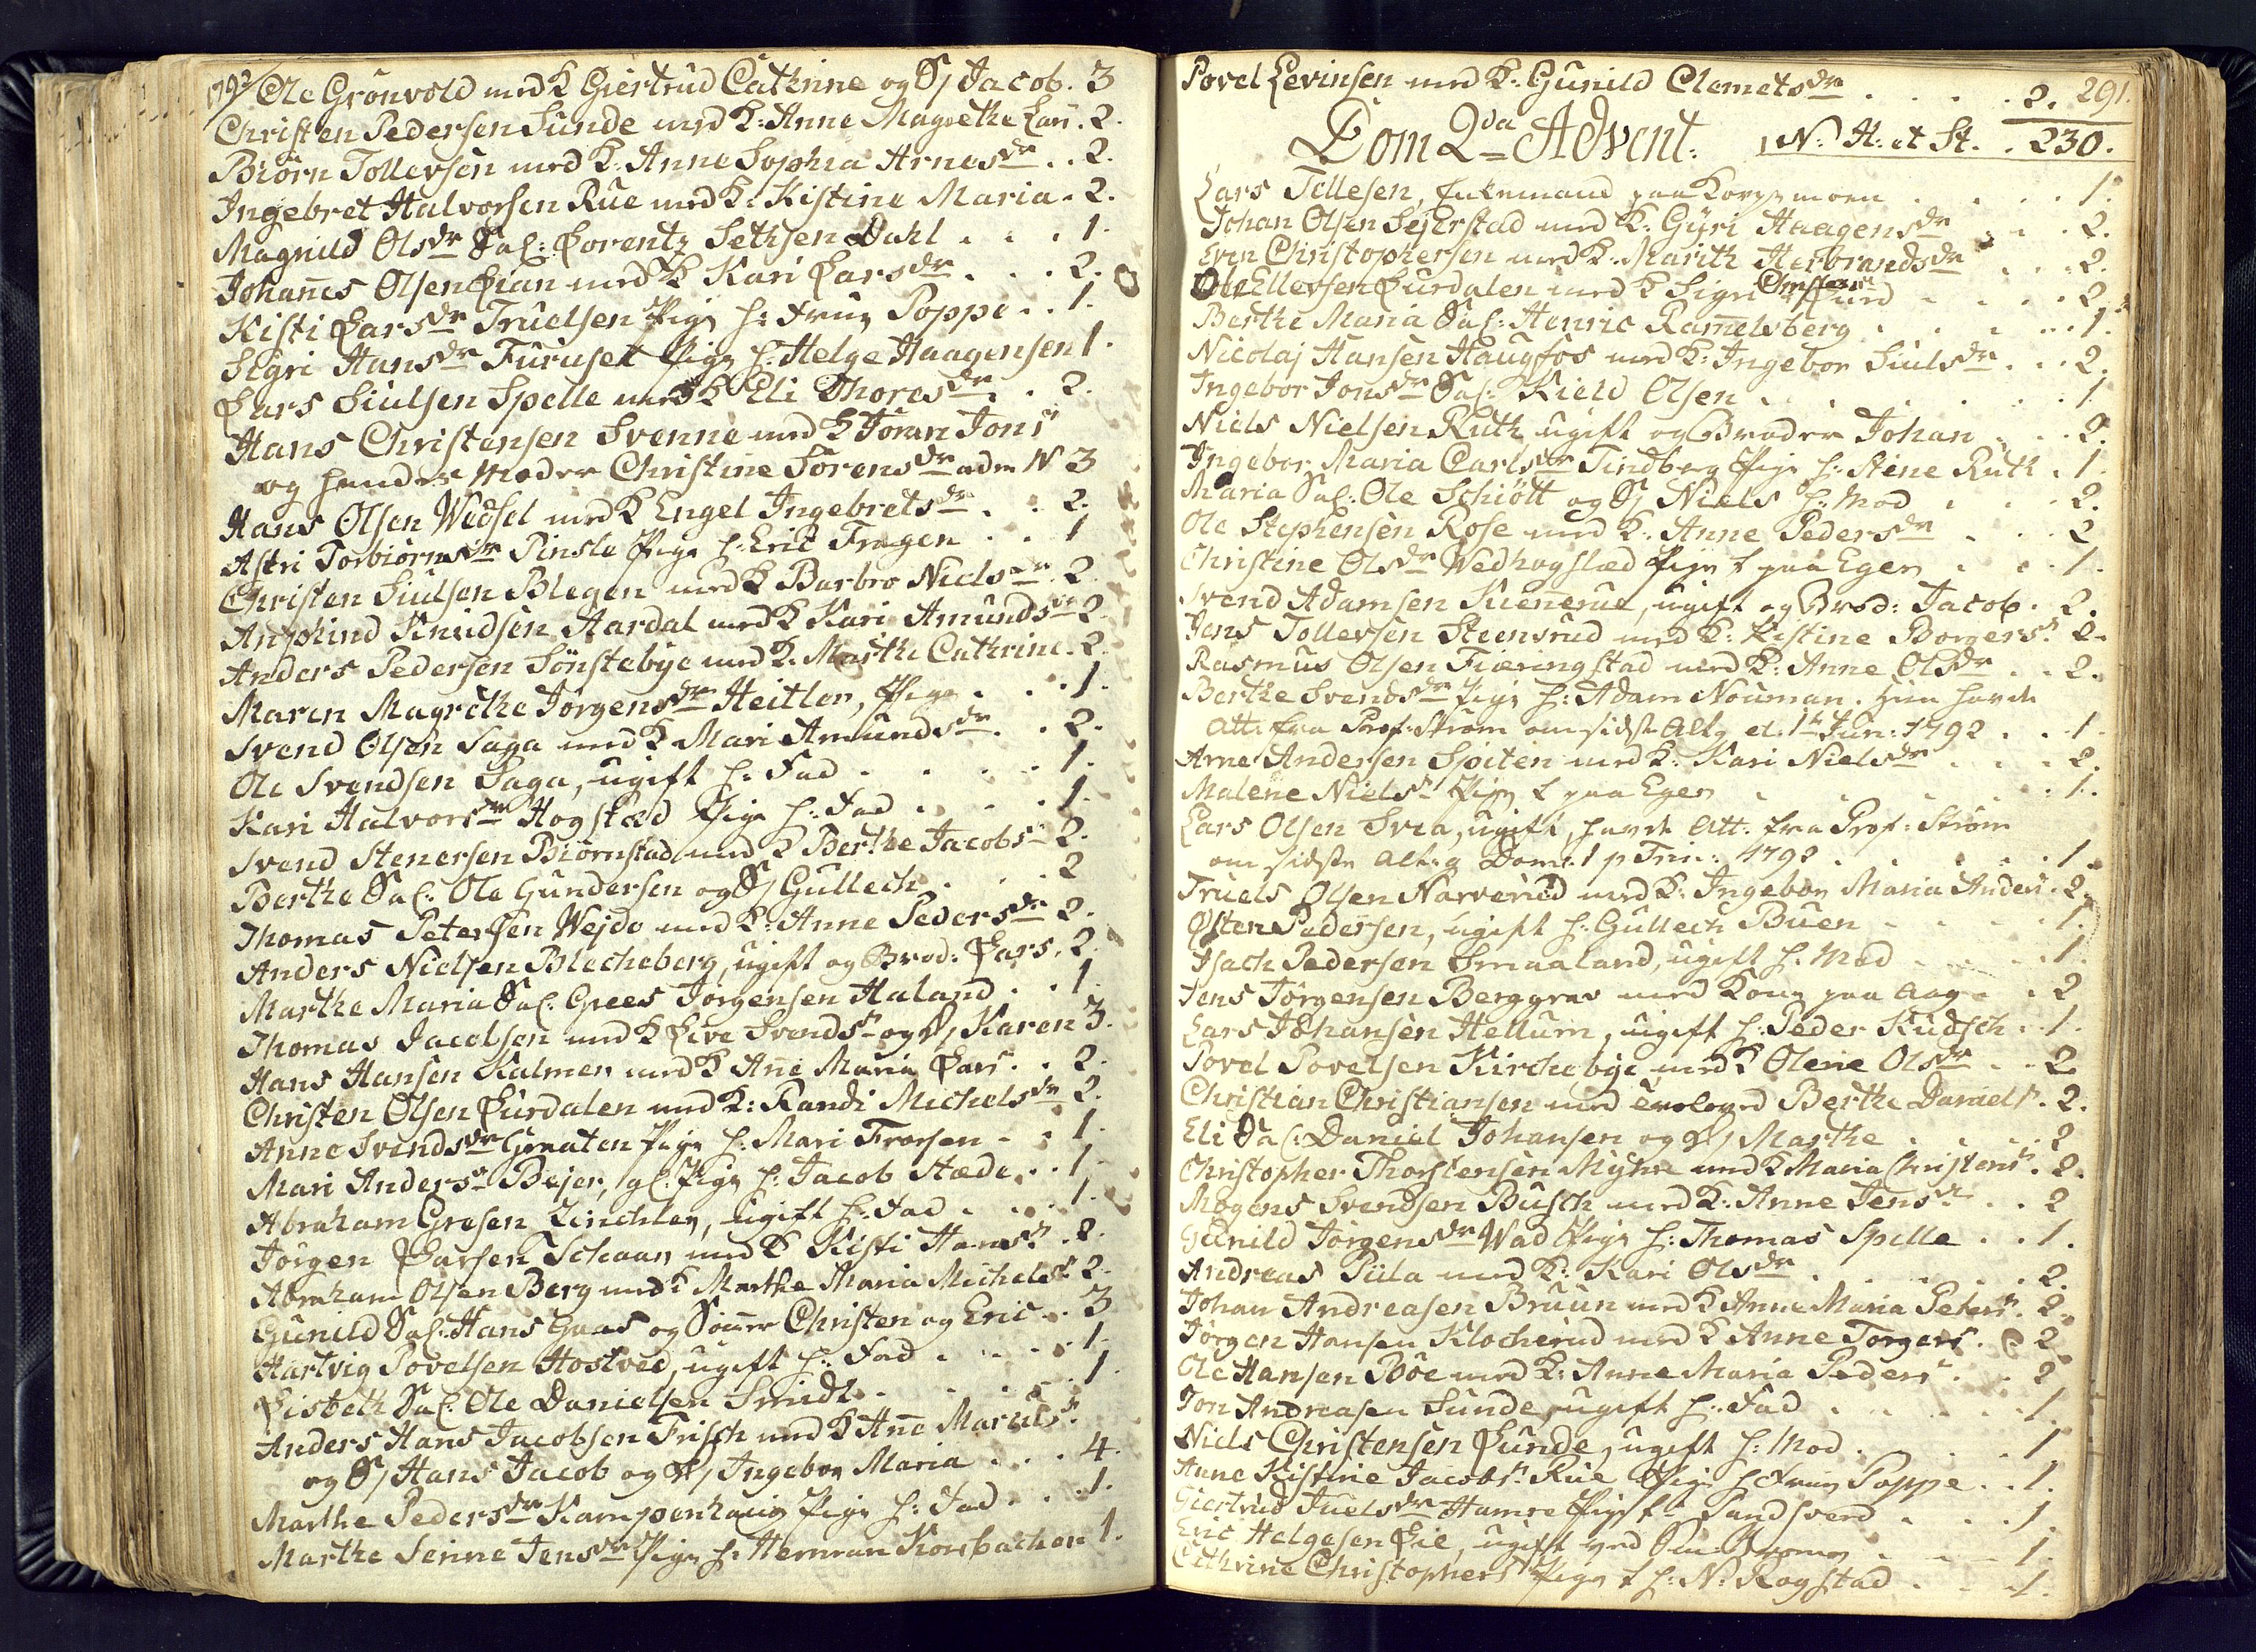 1792
Ole Grönvold med K Giertrud Cathrine og S/ Jacob. 3
Christen Pedersen Sunde med K: Anne Magrethe Lars. 2.
Biörn Tollevsen med K: Anne Sophia Arnesdr . . 2.
Ingebret Halvorsen Rue med K: Kistine Maria . 2.
Magnild Olsdr Sal: Lorentz Sethsen Dahl . . . 1.
Johanes Olsen Lian med K Kari Larsdr . . . 2.
Kisti Larsdr Truelsen Pige h: Frue Poppe . . 1.
Sigri Hansdr Furuset Pige h: Helge Haagensen 1.
Lars Siulsen Spelle med K Eli Thoresdr . . 2.
Hans Christensen Svenne med K Joran Jons
og hendes Moder Christine Sörensdr adm N 3
Hans Olsen Wedsel med K Engel Ingebretsdr . . 2.
Astri Torbiörnsdr Pinsle Pige h: Eric Fragen . . 1
Christen Siulsen Blegen med K Barbro Nielsdr 2.
Anphind Knudsen Aardal med K Kari Amundsdr 2.
Anders Pedersen Sönstebye med K. Marthe Cathrine. 2.
Maren Magrethe Jörgensdr Heitler, Pige . . . 1.
Svend Olsen Saga med K Mari Amundsdr . . 2.
Ole Svendsen Saga, ugift h: Fad . . . . 1.
Kari Halvorsdr Hogstad Pige h: Fad . . . 1.
Svend Stenersen Biörnstad med K Berthe Jacobs 2.
Berthe Sal: Ole Gundersen og S/ Gullech . . . 2
Thomas Petersen Wejdo med K: Anne Pedersdr 2.
Anders Nielsen Blecheberg, ugift og Brod: Lars. 2.
Marthe Maria Sal: Grees Jörgensen Haland . . 1
Thomas Jacobsen med K Live Svends og D/ Karen 3.
Hans Hansen Kalmer med K Ane Maria Lars . . 2.
Christen Olsen Lurdalen med K: Randi Michelsdr 2.
Anne Svendsdr Graaten Pige h: Mari Frorsen . . 1.
Mari Anders Bejer, gl: Pige h: Jacob Stæde . . 1.
Abraham Gresen Zinchler, ugift h: Fad . . . 1.
Jörgen Larsen Schaar med K Kisti Hans . 2.
Abraham Olsen Berg med K Marthe Maria Michels 2.
Gunild Sal: Hans Gaas og Sönner Christen og Eric . 3
Hartvig Povelsen Hostved, ugift h: Fad . . . 1.
Lisbeth Sal: Ole Danielsen Smidt . . . . 1.
Anders Hans Jacobsen Frisch med K Ane Marids
og S/ Hans Jacob og D/ Ingebor Maria . . . 4.
Marthe Pedersdr Kampenhaug Pige h: Fad . . . 1.
Marthe Senne Jensdr Pige h: Herman Korsbacher 1.
Povel Levinsen med K: Gunild Clemetsdr . . . . 2. 291.
Dom 2da Advent: N: H: et St. . 230.
Lars Tellesen, Enkemand paa Korpemoen . . . . 1.
Johan Olsen Sejerstad med K: Gyri Haagensdr . . . 2.
Even Christophersen med K: Marith Herbrandsdr . . . 2.
Ole Ellevsen Lurdalen med K Sigri . . . . 2.
Berthe Maria Sal: Henric Ramelsberg . . . . 1.
Nicolaj Hansen Haugfos med K: Ingebor Siulsdr . . . 2.
Ingebor Jonsdr Sal: Kield Olsen . . . . . . 1.
Niels Nielsen Ruth ugift og Broder Johan . . . 2.
Ingebor Maria Carlsdr Tindberg Pige h: Stene Ruth . 1.
Maria Sal: Ole Schiött og S/ Niels h: Mod . . . 2.
Ole Stephensen Rose med K: Anne Pedersdr . . . 2
Christine Olsdr Wedhogslæd Pige t paa Eger . . . 1.
Svend Adamsen Kuenerue, ugift og Brod: Jacob . 2.
Jens Tollevsen Steensrud med K: Kistine Borgers. 2.
Rasmus Olsen Fiæringstad med K: Anne Olsdr . . 2.
Berthe Svendsdr Pige h: Adam Nouman. Hun havde
Att: fra Prof: Strøm om sidste Altg d. 1te Jun: 1792 . . 1.
Arne Andersen Spiten med K: Kari Nielsdr . . . 2.
Malene Niels Pige t paa Eger . . . . . 1.
Lars Olsen Svea, ugift, havde Att: fra Prof: Strøm
om sidste Altg Dom: 1 p Trin: 1792 . . . . . 1.
Truels Olsen Narverud med K: Ingebor Maria Anders . 2.
Østen Pedersen, ugift h: Gullech Buen . . . . 1.
Isach Pedersen Smaaland, ugift h: Mod . . . . 1.
Jens Jörgensen Berggrav med Kone paa Aag . . 2
Lars Johansen Hellum, ugift h: Peder Kudsch . . 1.
Povel Povelsen Kirchebye med K Olene Olsdr . . 2.
Christian Christiansen med Troloved Berthe Daniels . 2.
Eli Sal: Daniel Johansen og D/ Marthe . . . . 2
Christopher Thorstensen Myhre med K Maria Christens . 2.
Mogens Svendsen Busch med K: Anne Jens . . 2
Gunild Jörgensdr Wad Pige h: Thomas Spelle . . . 1.
Andreas Piila med K: Kari Olsdr . . . . . 2.
Johan Andreasen Bruun med K Anne Maria Peters . 2.
Jörgen Hansen Klocherud med K Anne Torgers . 2
Ole Hansen Böe med K: Anne Maria Peders . . 2
Jon Andreasen Sunde, ugift h: Fad . . . . . 1.
Niels Christensen Lunde, ugift h: Mod . . . . 1
Anne Kistine Jacobs Rue Pige h Frue Poppe . . 1.
Giertrud Juelsdr Hamre Pige f Sandsverd . . . 1
Eric Helgesen Lie, ugift ved . . . 1.
Cathrine Christophers Pige t h: N: Rogstad . . . 1.